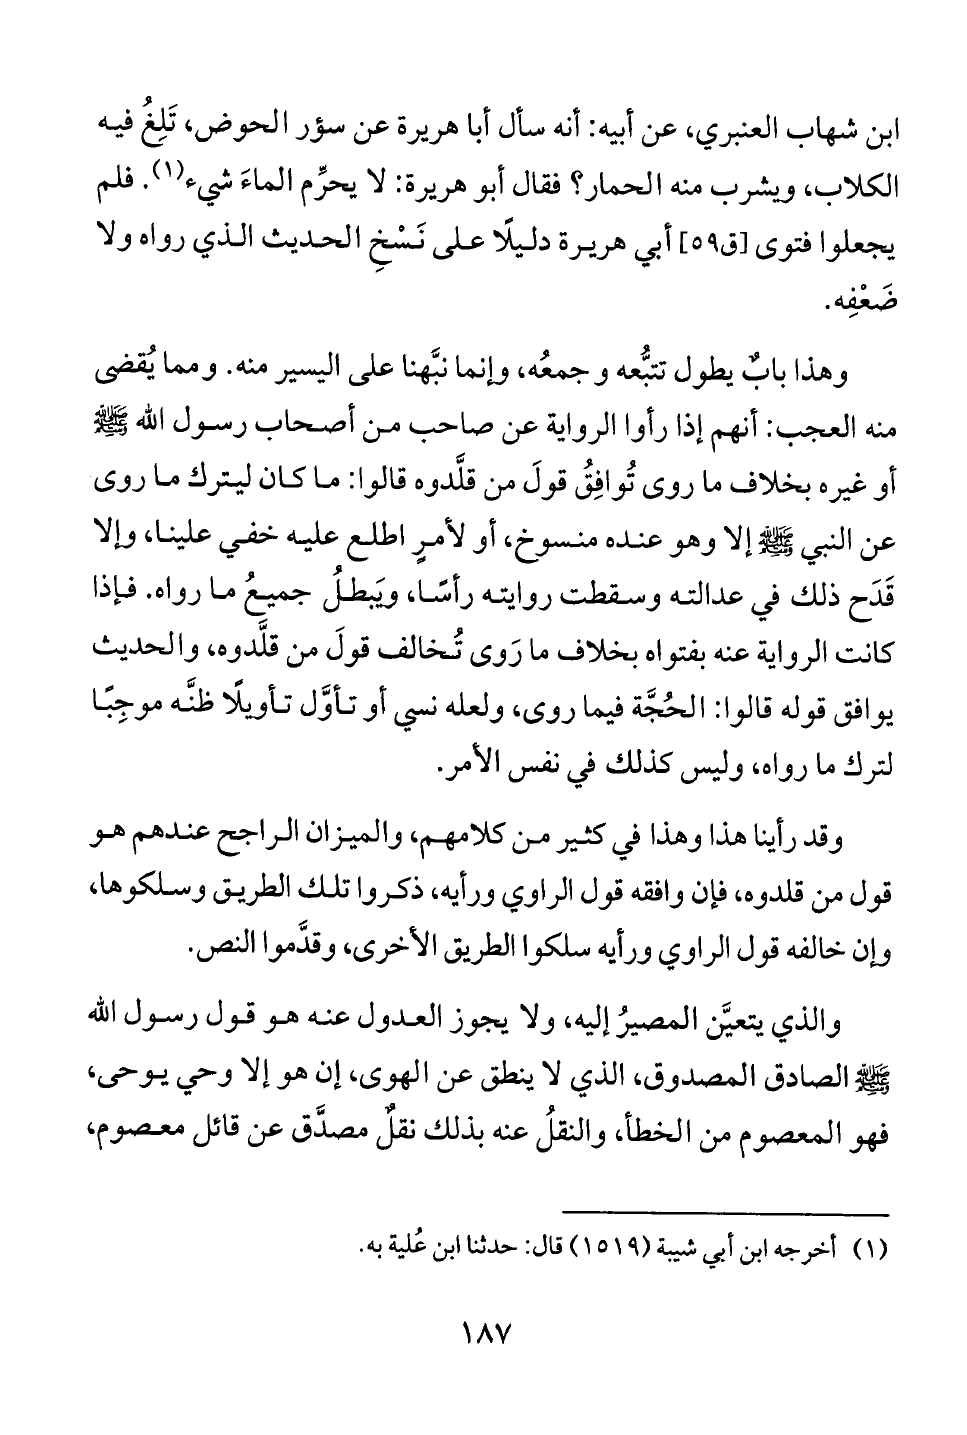 ابن شهاب العنبري، عن أبيه: أنه سأل أبا هريرة عن سؤر الحوض، تَلِغُ فيه
الكلاب، ويشرب منه الحمار؟ فقال أبو هريرة: لا يحرِّم الماءَ شيء(١). فلم
يجعلوا فتوى [ق٥٩] أبي هريرة دليلًا على نَسْخِ الحديث الذي رواه ولا
ضَعْفِه.
وهذا بابٌ يطول تتبُّعه وجمعُه، وإنما نبَّهنا على اليسير منه. ومما يُقضى
منه العجب: أنهم إذا رأوا الرواية عن صاحب من أصحاب رسول الله ﷺ
أو غيره بخلاف ما روى تُوافِقُ قولَ من قلَّدوه قالوا: ما كان ليترك ما روى
عن النبي ﷺ إلا وهو عنده منسوخ، أو لأمرٍ اطلع عليه خفي علينا، وإلا
قَدَح ذلك في عدالته وسقطت روايته رأسًا، ويَبطلُ جميعُ ما رواه. فإذا
كانت الرواية عنه بفتواه بخلاف ما رَوى تُخالف قولَ من قلَّدوه، والحديث
يوافق قوله قالوا: الحُجَّة فيما روى، ولعله نسي أو تأوَّل تأويلًا ظنَّه موجِبًا
لترك ما رواه، وليس كذلك في نفس الأمر.
وقد رأينا هذا وهذا في كثير من كلامهم، والميزان الراجح عندهم هو
قول من قلدوه، فإن وافقه قول الراوي ورأيه، ذكروا تلك الطريق وسلكوها،
وإن خالفه قول الراوي ورأيه سلكوا الطريق الأخرى، وقدَّموا النص.
والذي يتعيَّن المصيرُ إليه، ولا يجوز العدول عنه هو قول رسول الله
ﷺ الصادق المصدوق، الذي لا ينطق عن الهوى، إن هو إلا وحي يوحى،
فهو المعصوم من الخطأ، والنقلُ عنه بذلك نقلٌ مصدَّق عن قائل معصوم،
(١) أخرجه ابن أبي شيبة (١٥١٩) قال: حدثنا ابن عُلية به.
١٨٧